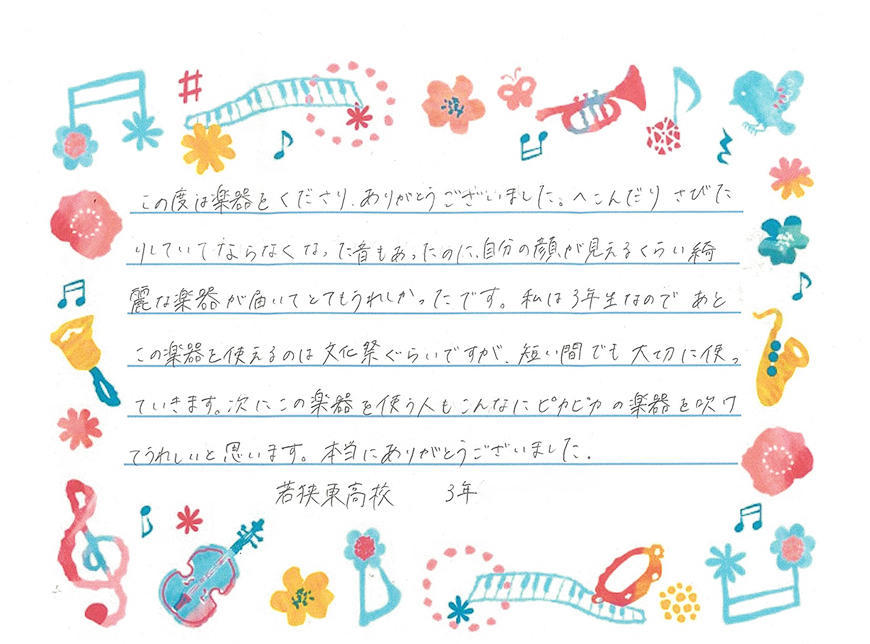 この度は楽器をくださり、ありがとうございました。へこんだり さびた
りしていてならなくなった音もあったのに、自分の顔が見えるくらい綺
麗な楽器が届いてとてもうれしかったです。私は3年生なので あと
この楽器を使えるのは文化祭ぐらいですが、短い間でも 大切に使っ
ていきます。次にこの楽器を使う人もこんなにピカピカの楽器を吹け
てうれしいと思います。本当にありがとうございました。
若狭東高校 3年